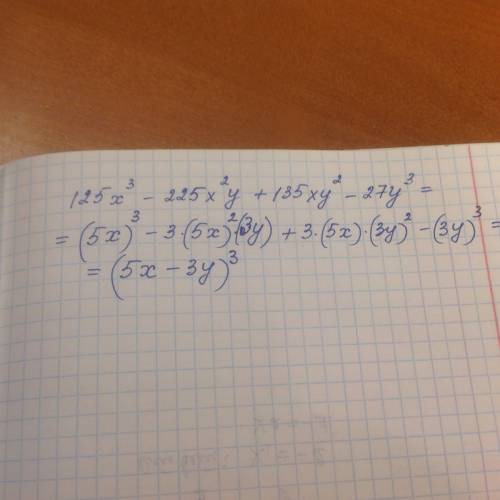 125x³ - 225x²y + 135xy² - 27y³ =
= (5x)³ - 3·(5x)²·(3y) + 3·(5x)·(3y)² - (3y)³ =
= (5x - 3y)³